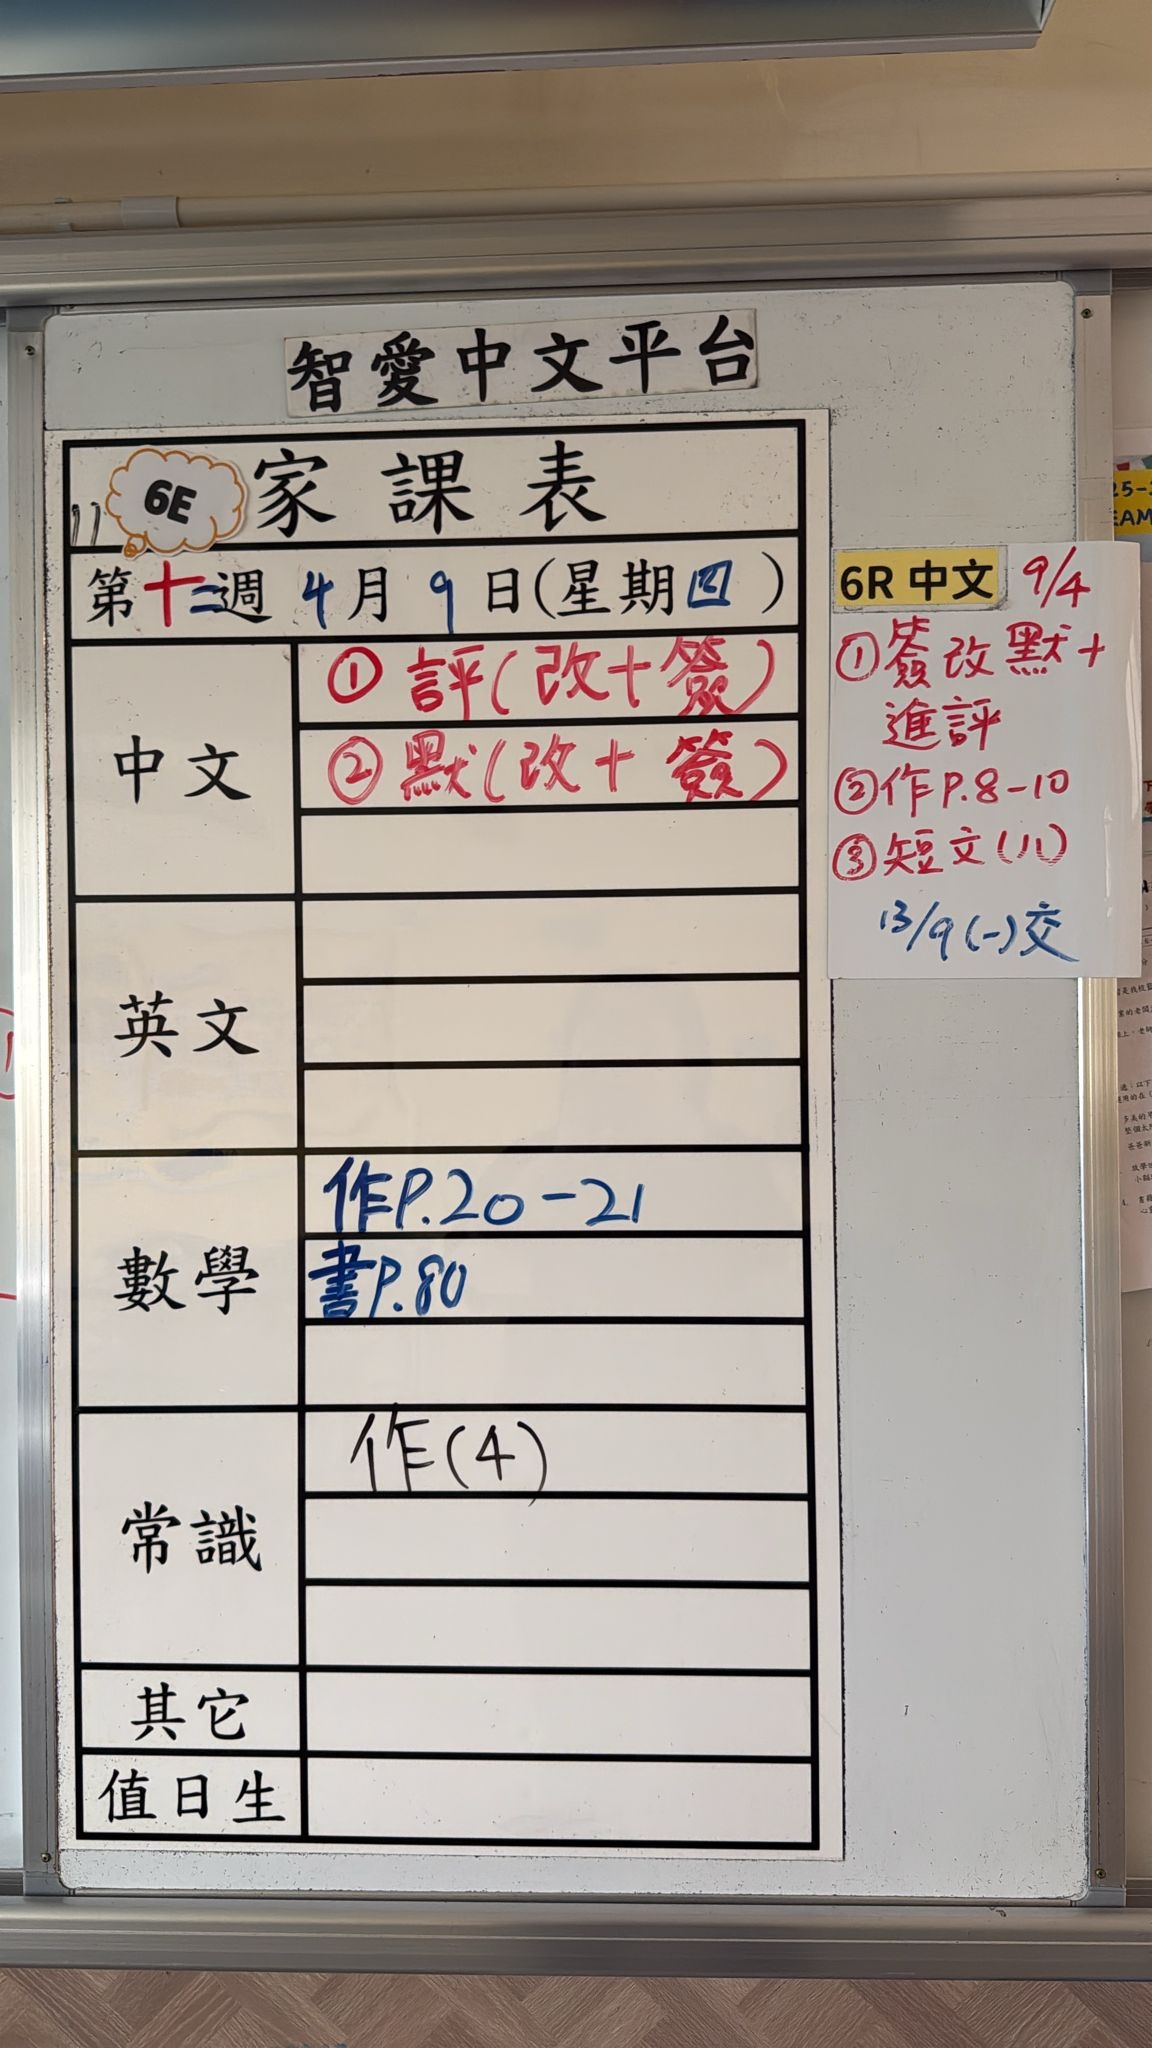 智愛中文平台
6E
家課表
第十二週 4月9日(星期四)
中文
① 評(改+簽)
② 默(改+簽)
英文
數學
作P.20-21
書P.80
常識
作(4)
其它
值日生
6R 中文 9/4
①簽改默+
進評
②作P.8-10
③短文(八)
13/9(一)交